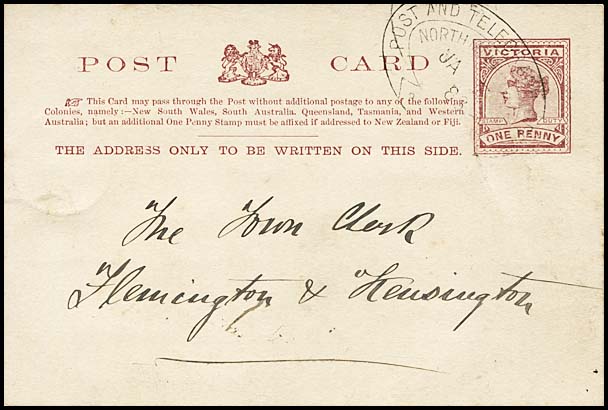 POST AND TELEG
NORTH
JA
8
POST CARD
VICTORIA
STAMP DUTY
ONE PENNY
☞ This Card may pass through the Post without additional postage to any of the following
Colonies, namely:—New South Wales, South Australia, Queensland, Tasmania, and Western
Australia; but an additional One Penny Stamp must be affixed if addressed to New Zealand or Fiji.
THE ADDRESS ONLY TO BE WRITTEN ON THIS SIDE.
The Town Clerk
Flemington & Kensington